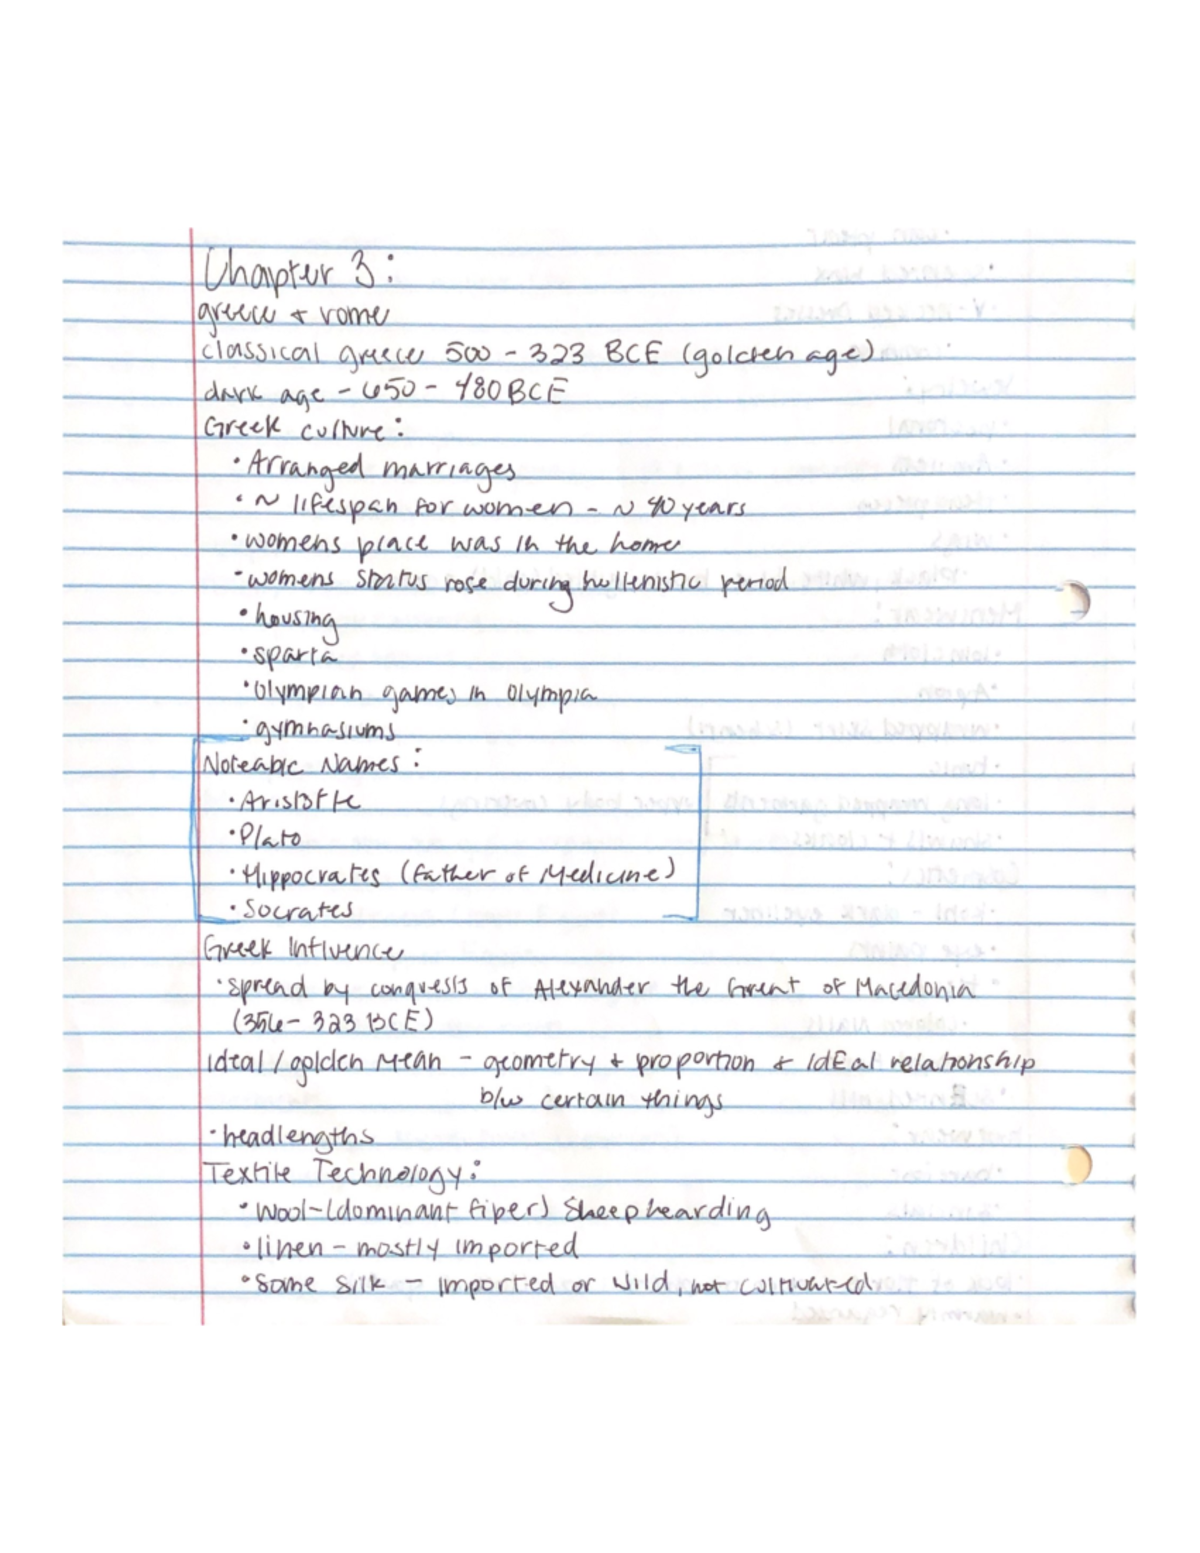 Chapter 3:
greece + rome
classical greece 500 - 323 BCE (golden age)
dark age - 650 - 480 BCE
Greek culture:
• Arranged marriages
• ~ lifespan for women - ~ 40 years
• womens place was in the home
- womens status rose during hellenistic period
• housing
• sparta
• Olympian games in Olympia
• gymnasiums
Noteable Names:
• Aristotle
• Plato
• Hippocrates (Father of Medicine)
• Socrates
Greek Influence
• spread by conquests of Alexander the Great of Macedonia
(356 - 323 BCE)
Ideal / golden Mean - geometry + proportion + IdEal relationship
b/w certain things
• headlengths
Textile Technology:
• Wool - (dominant fiper) Sheep hearding
• linen - mostly imported
• Some silk - imported or wild, not cultivated